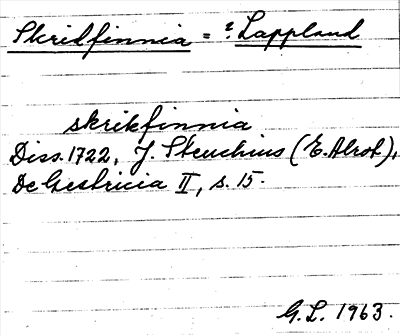 Skridfinnia = ? Lappland
skrikfinnia
Diss. 1722, J. Steuchius (E. Alrot),
De Gestricia II, s. 15.
G.L. 1963.